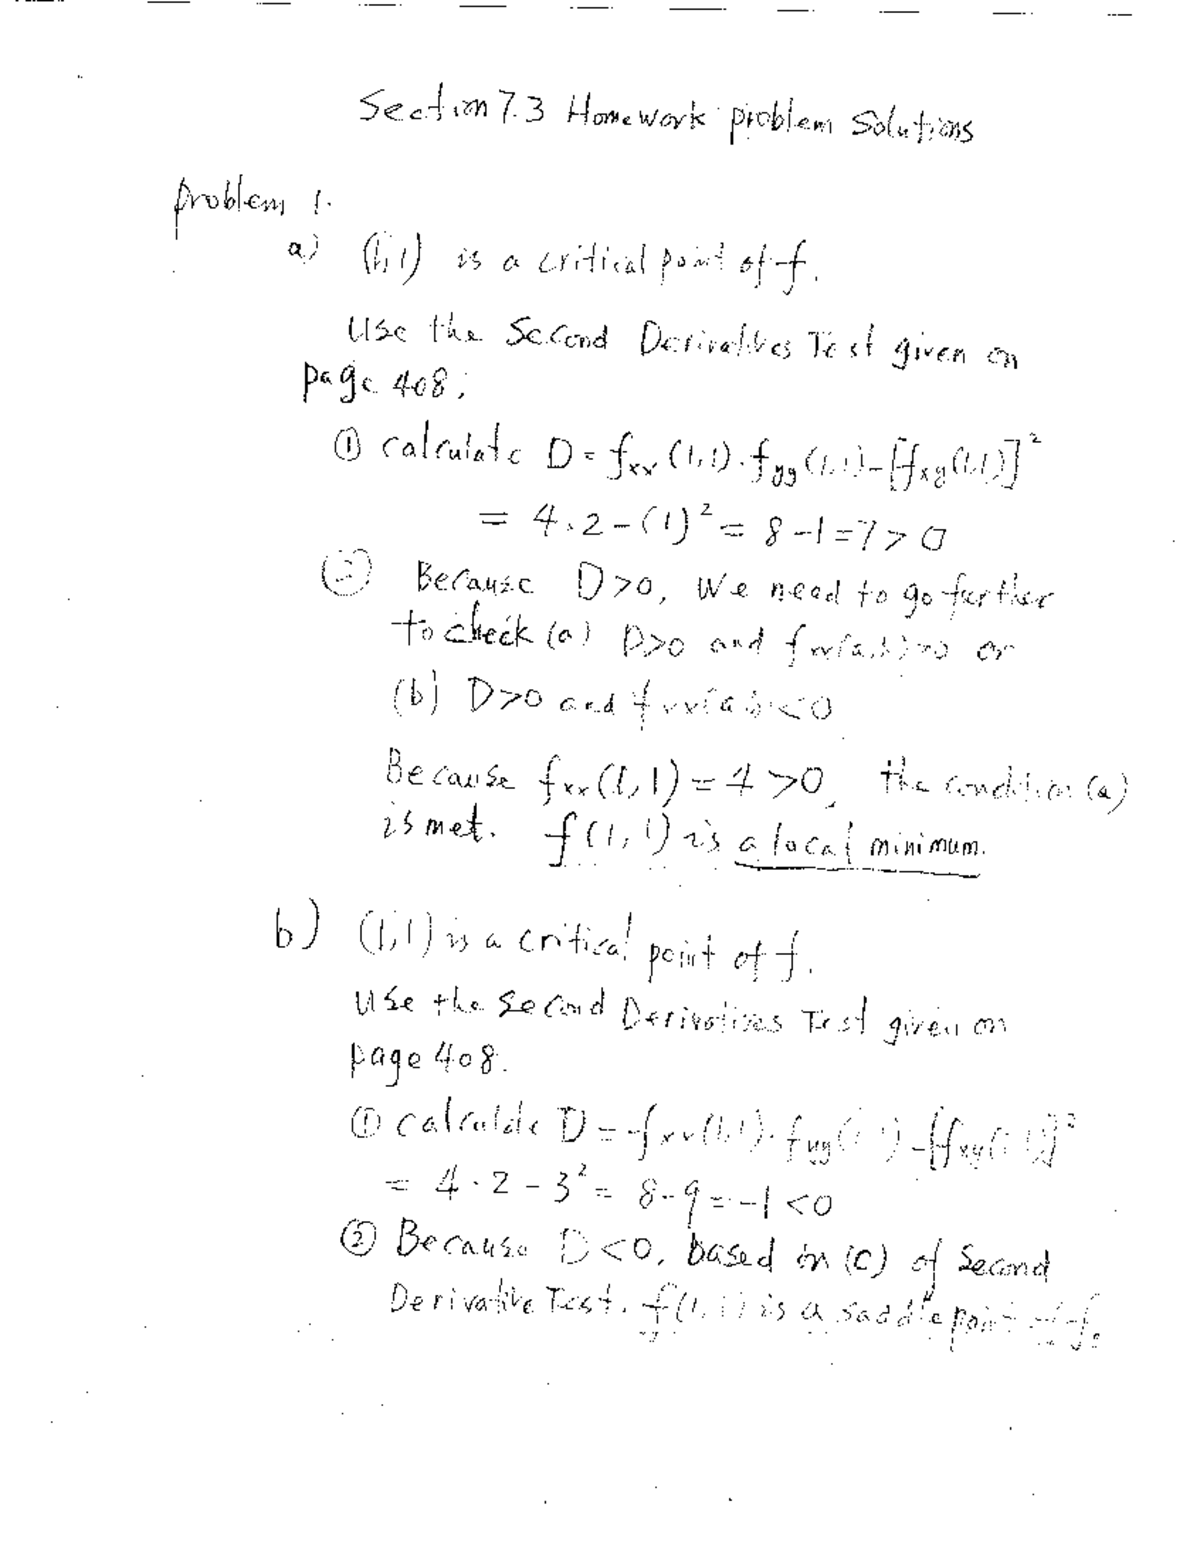 Section 7.3 Homework problem Solutions
problem 1.
a) (1,1) is a critical point of f.
Use the Second Derivatives Test given on
page 408;
① calculate D = fxx (1,1) · fyy (1,1) - [fxy(1,1)]²
= 4 · 2 - (1)² = 8 - 1 = 7 > 0
② Because D > 0, We need to go further
to check (a) D>0 and fxx(a,b)>0 or
(b) D>0 and fxx(a,b)<0
Because fxx(1,1) = 4 > 0, the condition (a)
is met. f(1,1) is a local minimum.
b) (1,1) is a critical point of f.
Use the Second Derivatives Test given on
page 408.
① calculate D = fxx(1,1) · fyy(1,1) - [fxy(1,1)]²
= 4 · 2 - 3² = 8 - 9 = -1 < 0
② Because D < 0, based on (C) of Second
Derivative Test. f(1,1) is a saddle point of f.